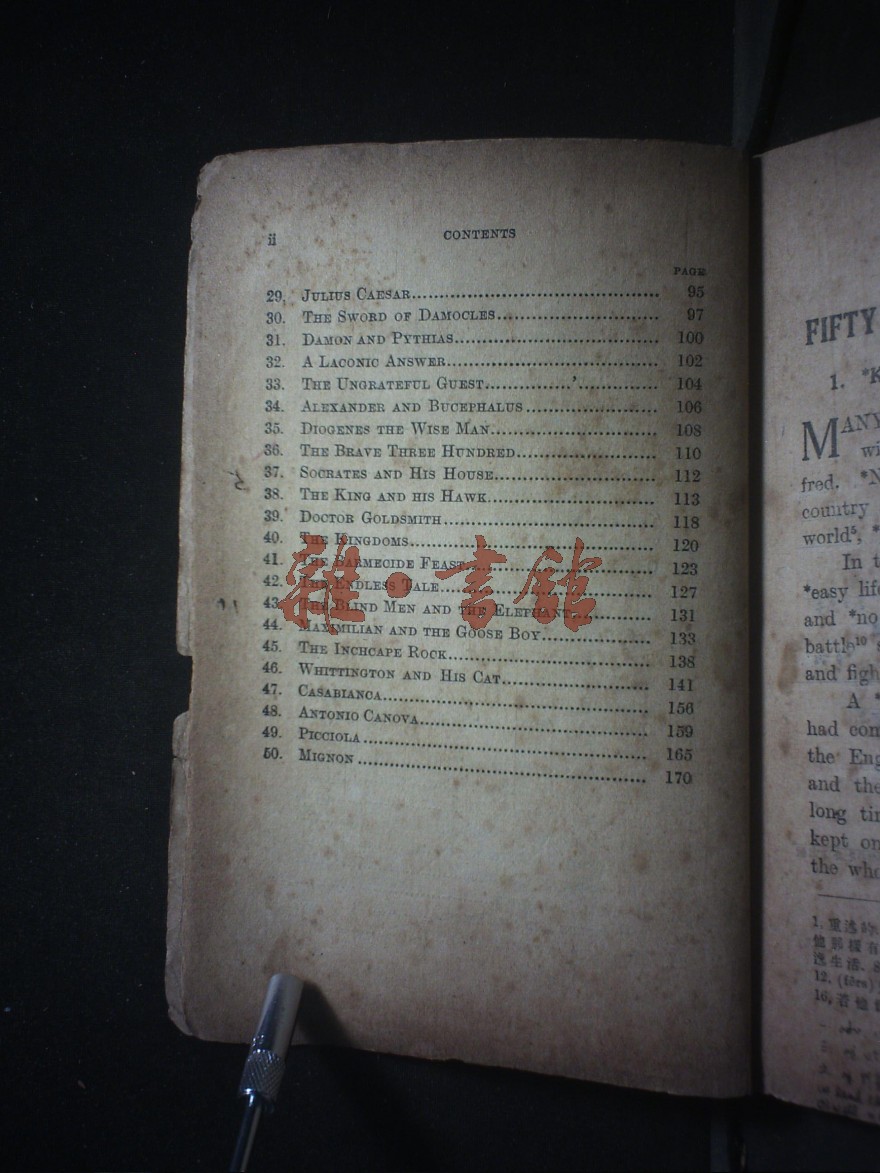 ii
CONTENTS
PAGE
29. JULIUS CAESAR 95
30. THE SWORD OF DAMOCLES 97
31. DAMON AND PYTHIAS 100
32. A LACONIC ANSWER 102
33. THE UNGRATEFUL GUEST 104
34. ALEXANDER AND BUCEPHALUS 106
35. DIOGENES THE WISE MAN 108
36. THE BRAVE THREE HUNDRED 110
37. SOCRATES AND HIS HOUSE 112
38. THE KING AND HIS HAWK 113
39. DOCTOR GOLDSMITH 118
40. THE KINGDOMS 120
41. THE BARMECIDE FEAST 123
42. THE ENDLESS TALE 127
43. THE BLIND MEN AND THE ELEPHANT 131
44. MAXIMILIAN AND THE GOOSE BOY 133
45. THE INCHCAPE ROCK 138
46. WHITTINGTON AND HIS CAT 141
47. CASABIANCA 156
48. ANTONIO CANOVA 159
49. PICCIOLA 165
50. MIGNON 170
雜·書館
FIFTY
1. *K
MANY
wi
fred. *N
country
world⁵, *
In t
*easy life
and *no
battle¹⁰ s
and figh
A *
had com
the Eng
and the
long tim
kept on
the who